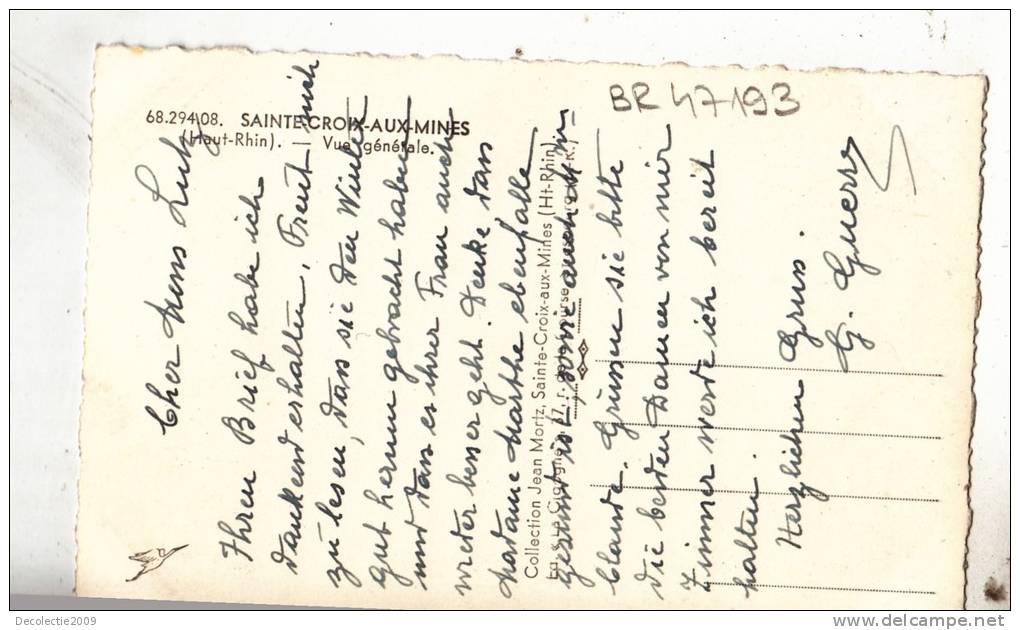 68.294\08. SAINTE-CROIX-AUX-MINES
(Haut-Rhin). — Vue générale.
BR 47193
Cher Mons Lutz
Ihren Brief habe ich
dankend erhalten, Freut mich
zu lesen, dass sie den Winter
gut herum gebracht haben
und dass es ihrer Frau auch
wieder besser geht. Denke dass
Madame Marthe ebenfalls
gesund ist, sowie auch
Claude. Grüssen sie bitte
die beiden Damen von mir
Zimmer werde ich bereit
halten.
Herzlichen Gruss.
G. Guerre
Collection Jean Mortz, Sainte-Croix-aux-Mines (Ht-Rhin)
La Cigogne
Decolectie2009
delcampe.net